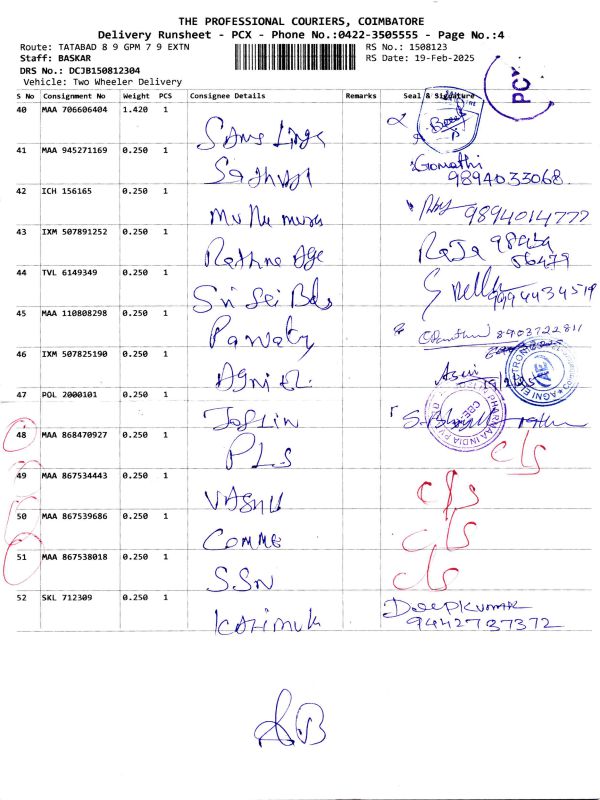 THE PROFESSIONAL COURIERS, COIMBATORE
Delivery Runsheet - PCX - Phone No.:0422-3505555 - Page No.:4
Route: TATABAD 8 9 GPM 7 9 EXTN
RS No.: 1508123
Staff: BASKAR
RS Date: 19-Feb-2025
DRS No.: DCJB150812304
Vehicle: Two Wheeler Delivery
PCX
S No Consignment No Weight PCS Consignee Details Remarks Seal & Signature
40 MAA 706606404 1.420 1
41 MAA 945271169 0.250 1 Sathyaji Gomathi
9894033068
42 ICH 156165 0.250 1 9894014777
43 IXM 507891252 0.250 1 Rathna Age Raja 98434
56479
44 TVL 6149349 0.250 1 Sri Sai Bds 9994434519
45 MAA 110808298 0.250 1 Parvaty 8903722811
46 IXM 507825190 0.250 1 Agni EL.
47 POL 2000101 0.250 1 Joslin
48 MAA 868470927 0.250 1 PLS c/s
49 MAA 867534443 0.250 1 c/s
50 MAA 867539686 0.250 1 Comme c/s
51 MAA 867538018 0.250 1 SSN c/s
52 SKL 712309 0.250 1 Karimuk Deepkumar
9442737372